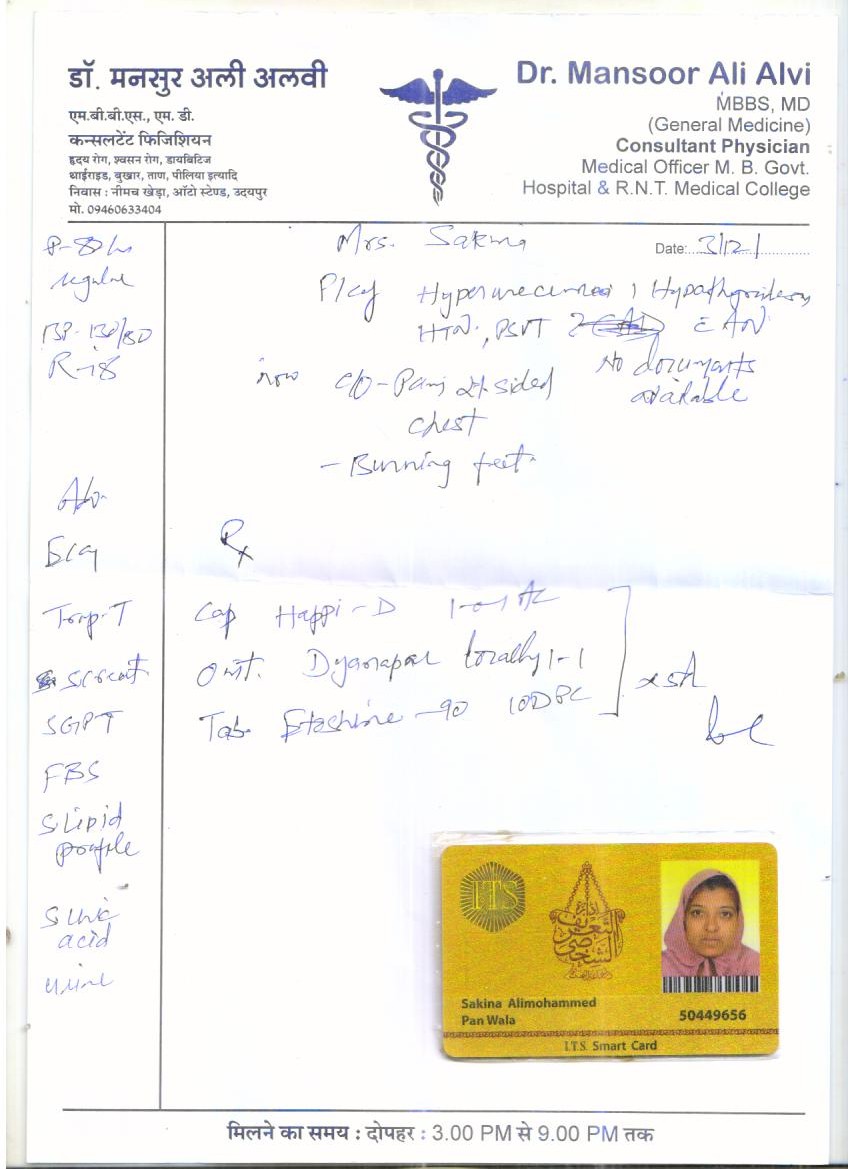 डॉ. मनसुर अली अलवी
एम.बी.बी.एस., एम. डी.
कन्सलटेंट फिजिशियन
हृदय रोग, श्वसन रोग, डायबिटिज
थाईराइड, बुखार, ताण, पीलिया इत्यादि
निवास : नीमच खेड़ा, ऑटो स्टेण्ड, उदयपुर
मो. 09460633404
Dr. Mansoor Ali Alvi
MBBS, MD
(General Medicine)
Consultant Physician
Medical Officer M. B. Govt.
Hospital & R.N.T. Medical College
Mrs. Sakina
Date: 3/12/
regular
BP-130/80
R-18
HTN, PSVT
No documents
available
now c/o - Pain sided
chest
- Burning feet
Rx
Trop-T
SGPT
FBS
S Lipid
profile
S Uric
acid
urine
Cap Happi-D
Oint. locally 1-1
Tab. -90
ITS
Sakina Alimohammed
Pan Wala
50449656
I.T.S. Smart Card
मिलने का समय : दोपहर : 3.00 PM से 9.00 PM तक